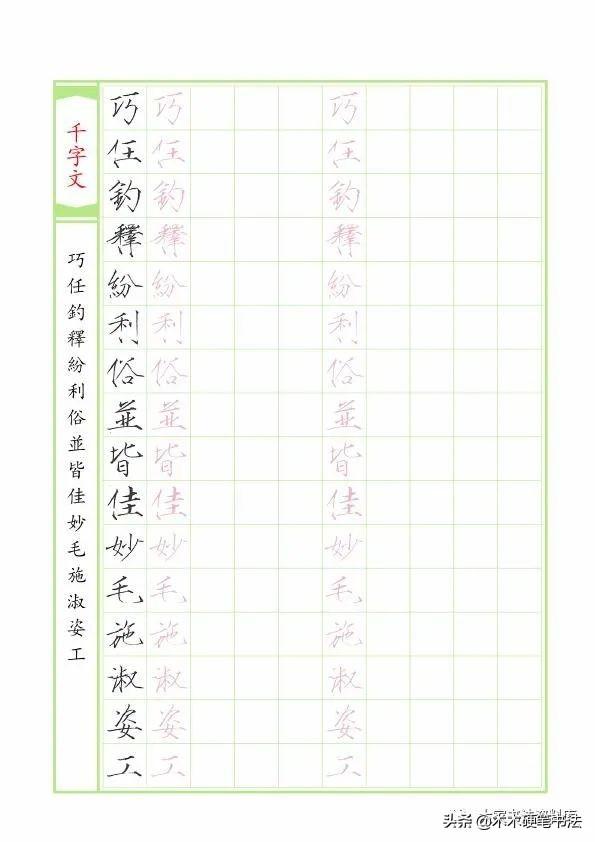 千字文
巧任釣釋紛利俗並皆佳妙毛施淑姿工
巧 巧 巧
任 任 任
釣 釣 釣
釋 釋 釋
紛 紛 紛
利 利 利
俗 俗 俗
並 並 並
皆 皆 皆
佳 佳 佳
妙 妙 妙
毛 毛 毛
施 施 施
淑 淑 淑
姿 姿 姿
工 工 工
头条 @木木硬笔书法